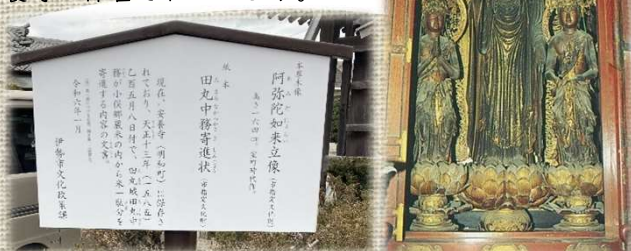 本尊木像
阿弥陀如来立像（市指定文化財）
高さ一六四㎝。室町時代作。
紙本
田丸中務寄進状（市指定文化財）
現在、安養寺（明和町）に保存さ
れており、天正十三年（一五八五）
乙酉五月八日付で、田丸城田丸中
務が小俣郷蔵米の内から米一駄分を
寄進する内容の文書。
令和六年一月
伊勢市文化政策課